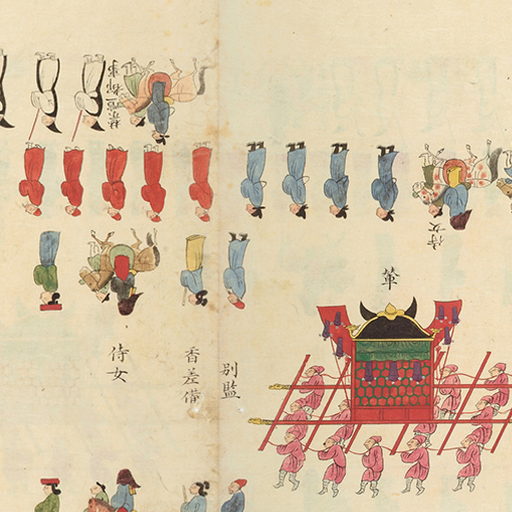 侍女
輦
別監
香差備
侍女